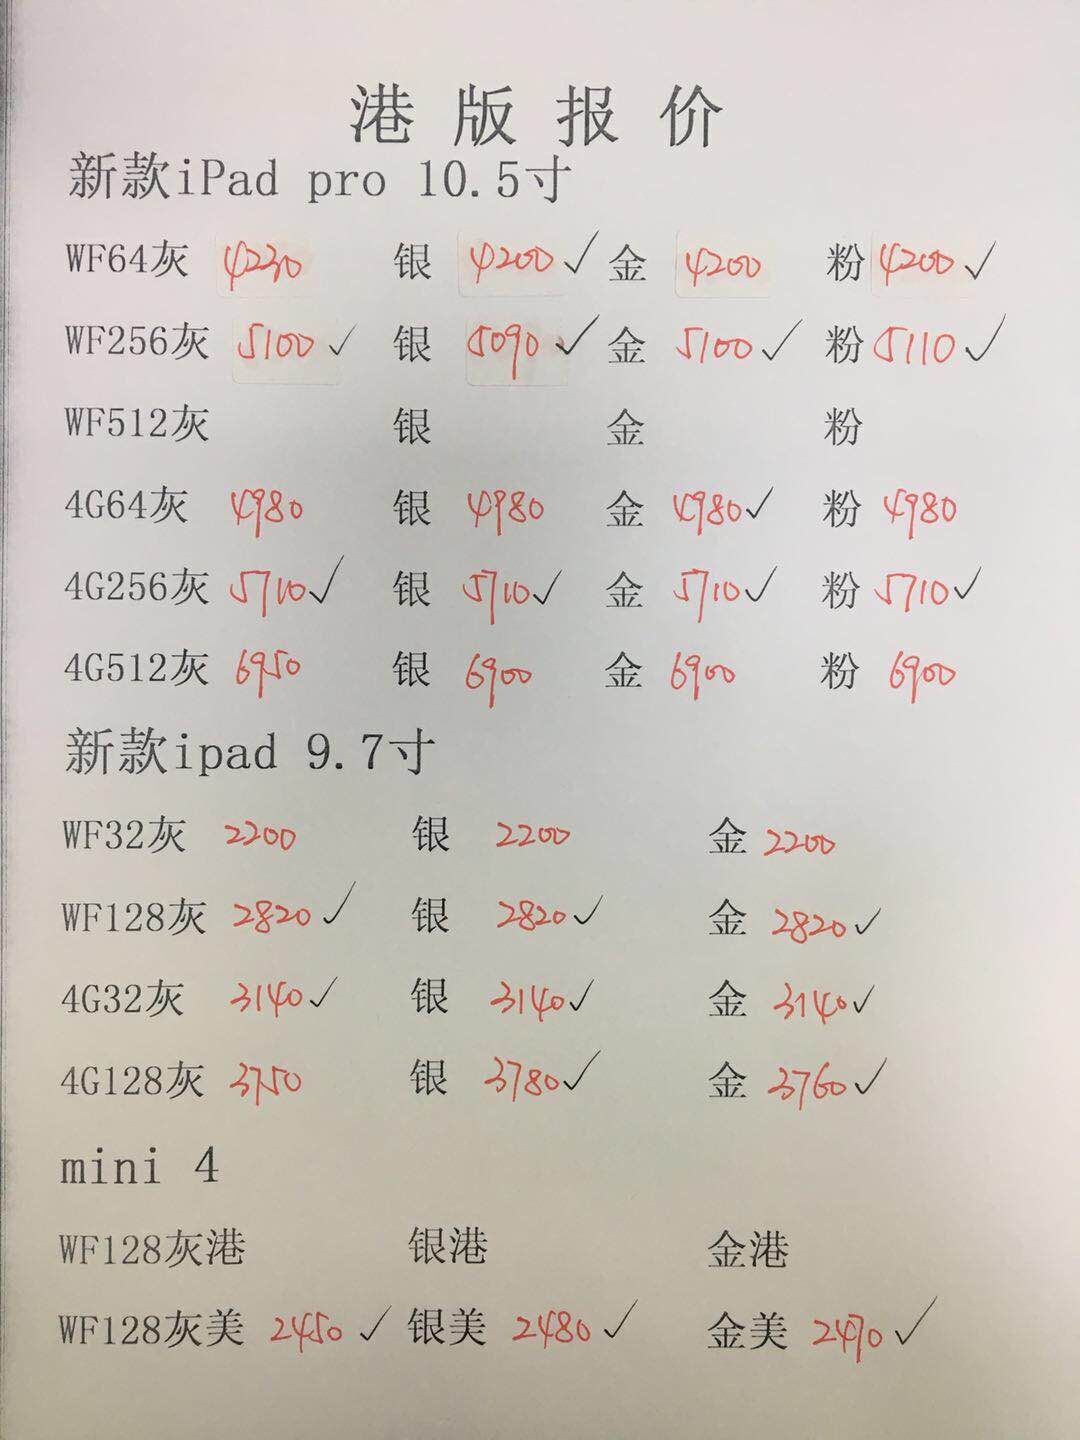 港版报价
新款iPad pro 10.5寸
WF64灰 4230 银 4200✓ 金 4200 粉 4200✓
WF256灰 5100✓ 银 5090✓ 金 5100✓ 粉 5110✓
WF512灰 银 金 粉
4G64灰 4980 银 4980 金 4980✓ 粉 4980
4G256灰 5710✓ 银 5710✓ 金 5710✓ 粉 5710✓
4G512灰 6950 银 6900 金 6900 粉 6900
新款ipad 9.7寸
WF32灰 2200 银 2200 金 2200
WF128灰 2820✓ 银 2820✓ 金 2820✓
4G32灰 3140✓ 银 3140✓ 金 3140✓
4G128灰 3750 银 3780✓ 金 3760✓
mini 4
WF128灰港 银港 金港
WF128灰美 2450✓ 银美 2480✓ 金美 2470✓